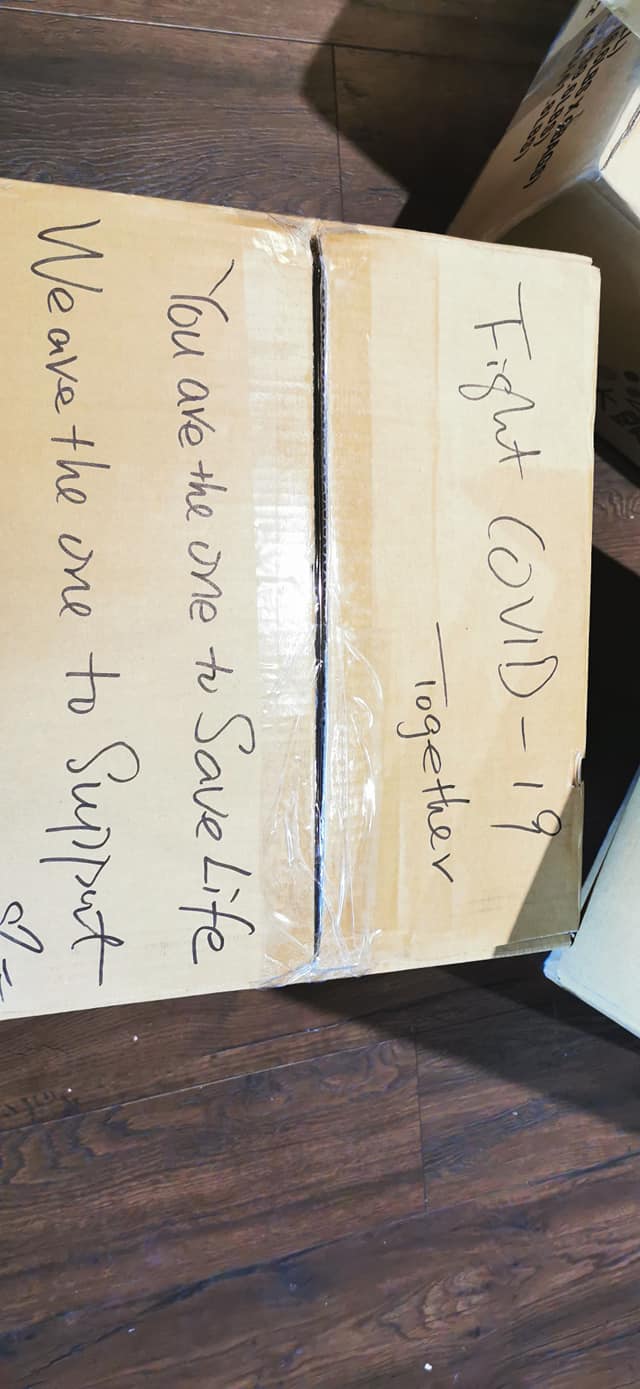 Fight COVID-19
Together
You are the one to Save Life
We are the one to Support